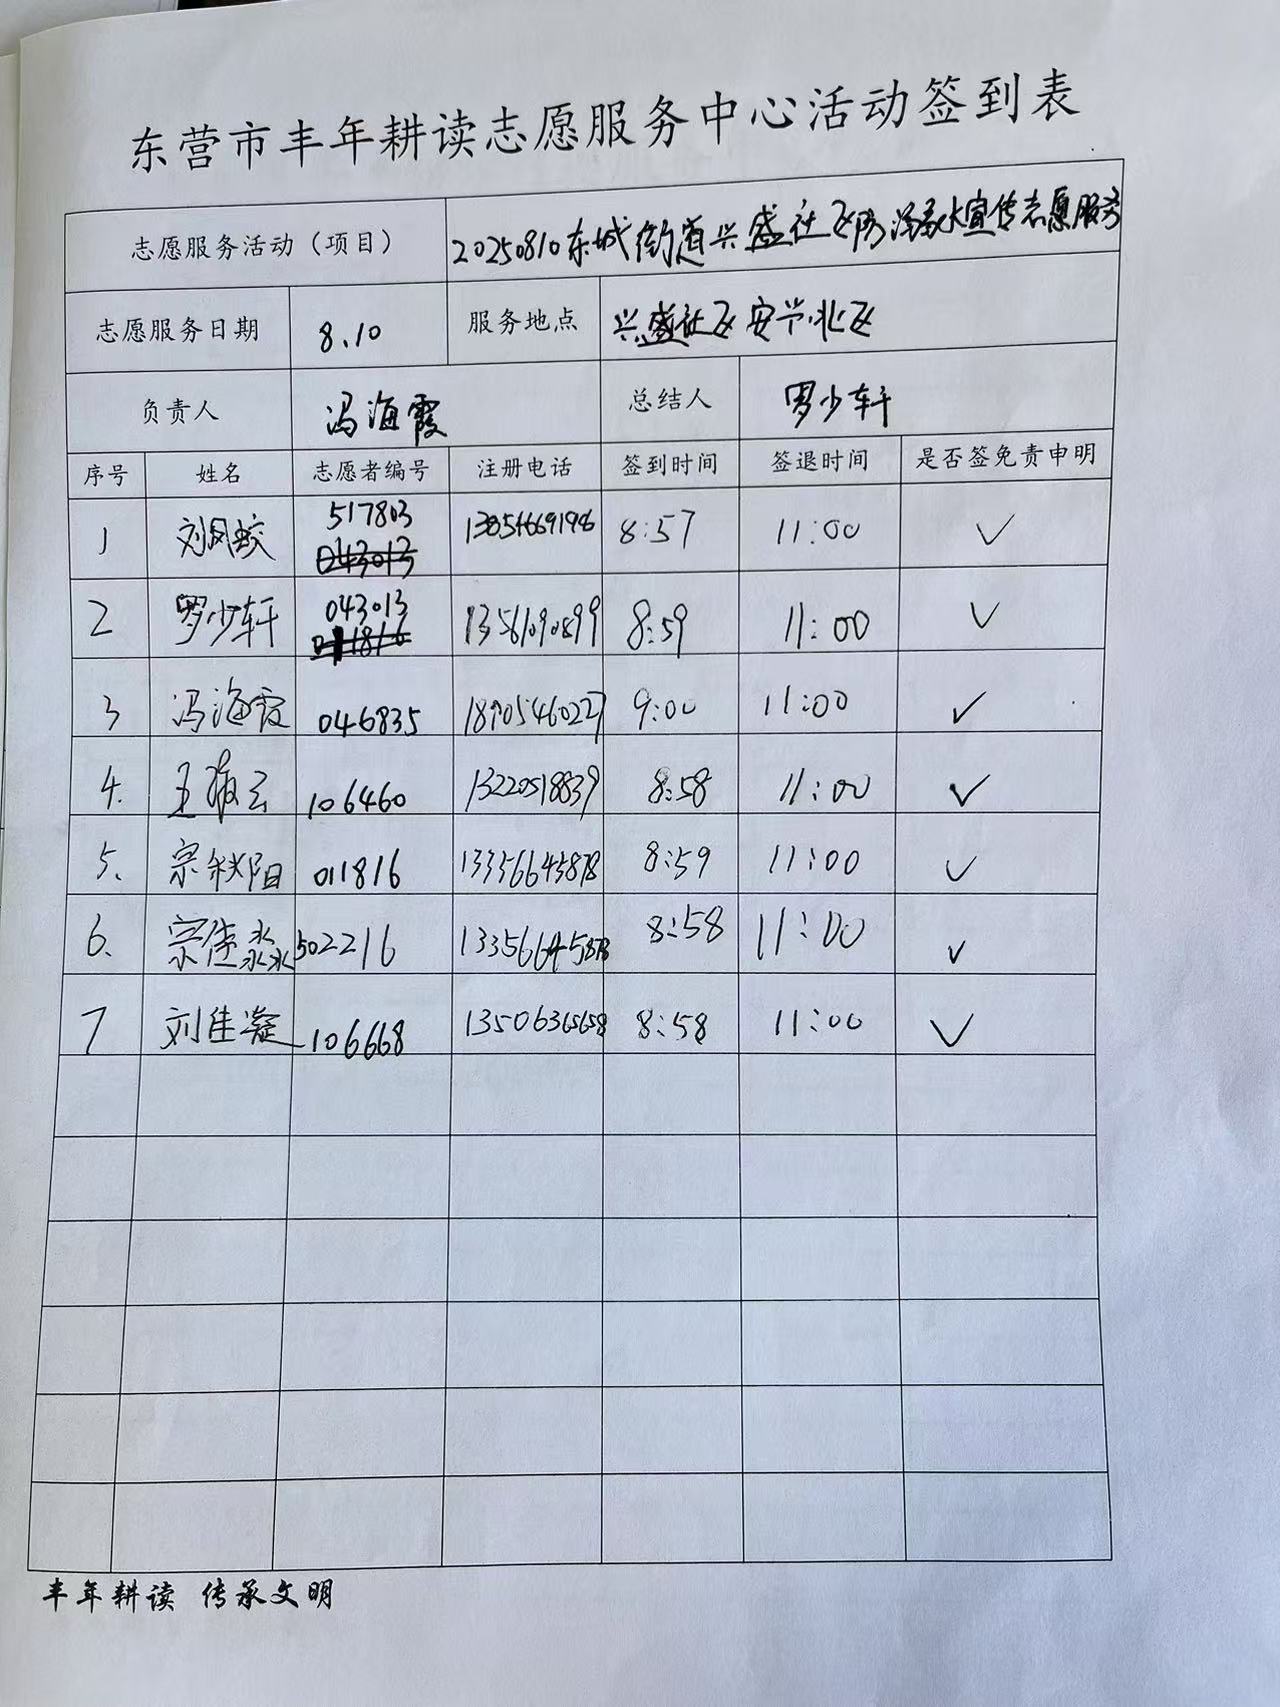 东营市丰年耕读志愿服务中心活动签到表
志愿服务活动（项目） 20250810东城街道兴盛社区防溺水宣传志愿服务
志愿服务日期 8.10 服务地点 兴盛社区安兴北区
负责人 冯海霞 总结人 罗少轩
序号 姓名 志愿者编号 注册电话 签到时间 签退时间 是否签免责申明
1 刘凤蛟 517803 13854669198 8:57 11:00 ✓
043013
2 罗少轩 043013 13561090899 8:59 11:00 ✓
011816
3 冯海霞 046835 18905460227 9:00 11:00 ✓
4. 王 云 106460 13220518839 8:58 11:00 ✓
5. 宗秋阳 011816 13356645878 8:59 11:00 ✓
6. 宗佳淼 502216 13356645878 8:58 11:00 ✓
7 刘佳凝 106668 13506365658 8:58 11:00 ✓
丰年耕读 传承文明